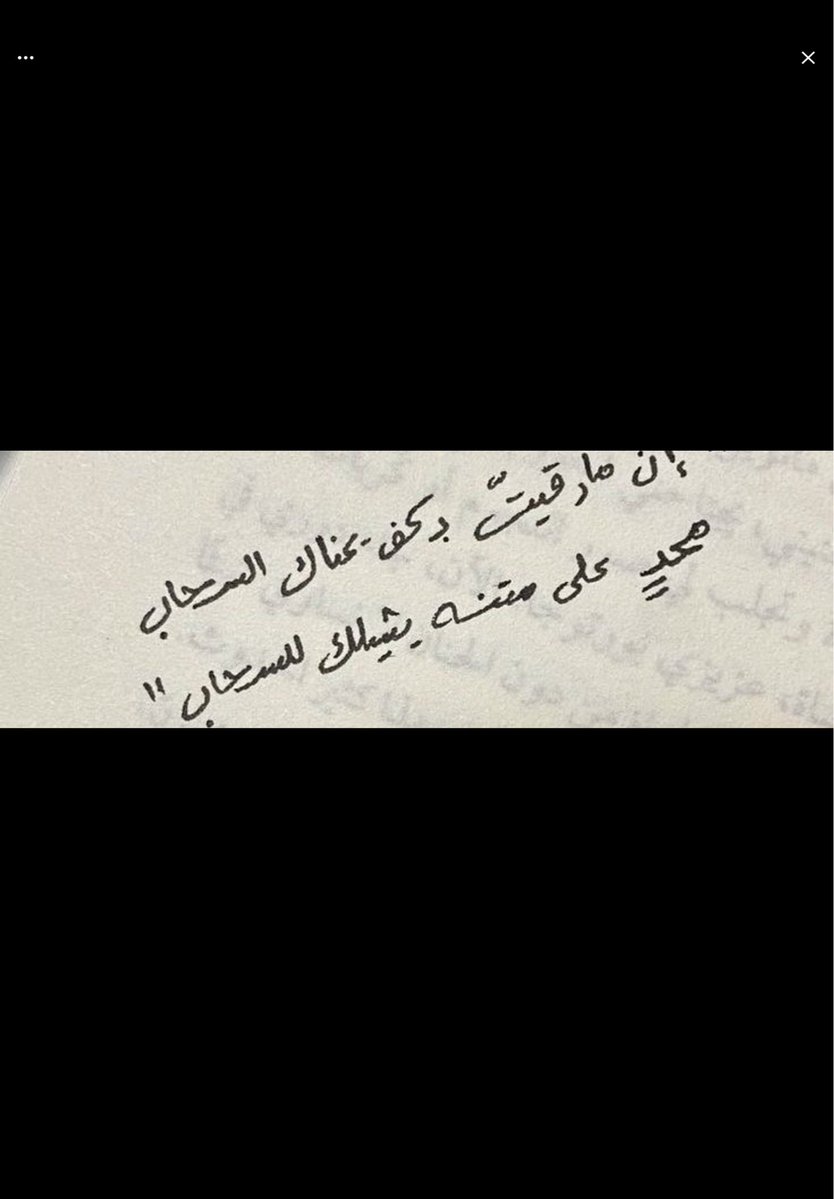 " إن مارقيتّ بكف يمناك السحاب
محدٍ على متنه يشيلك للسحاب "